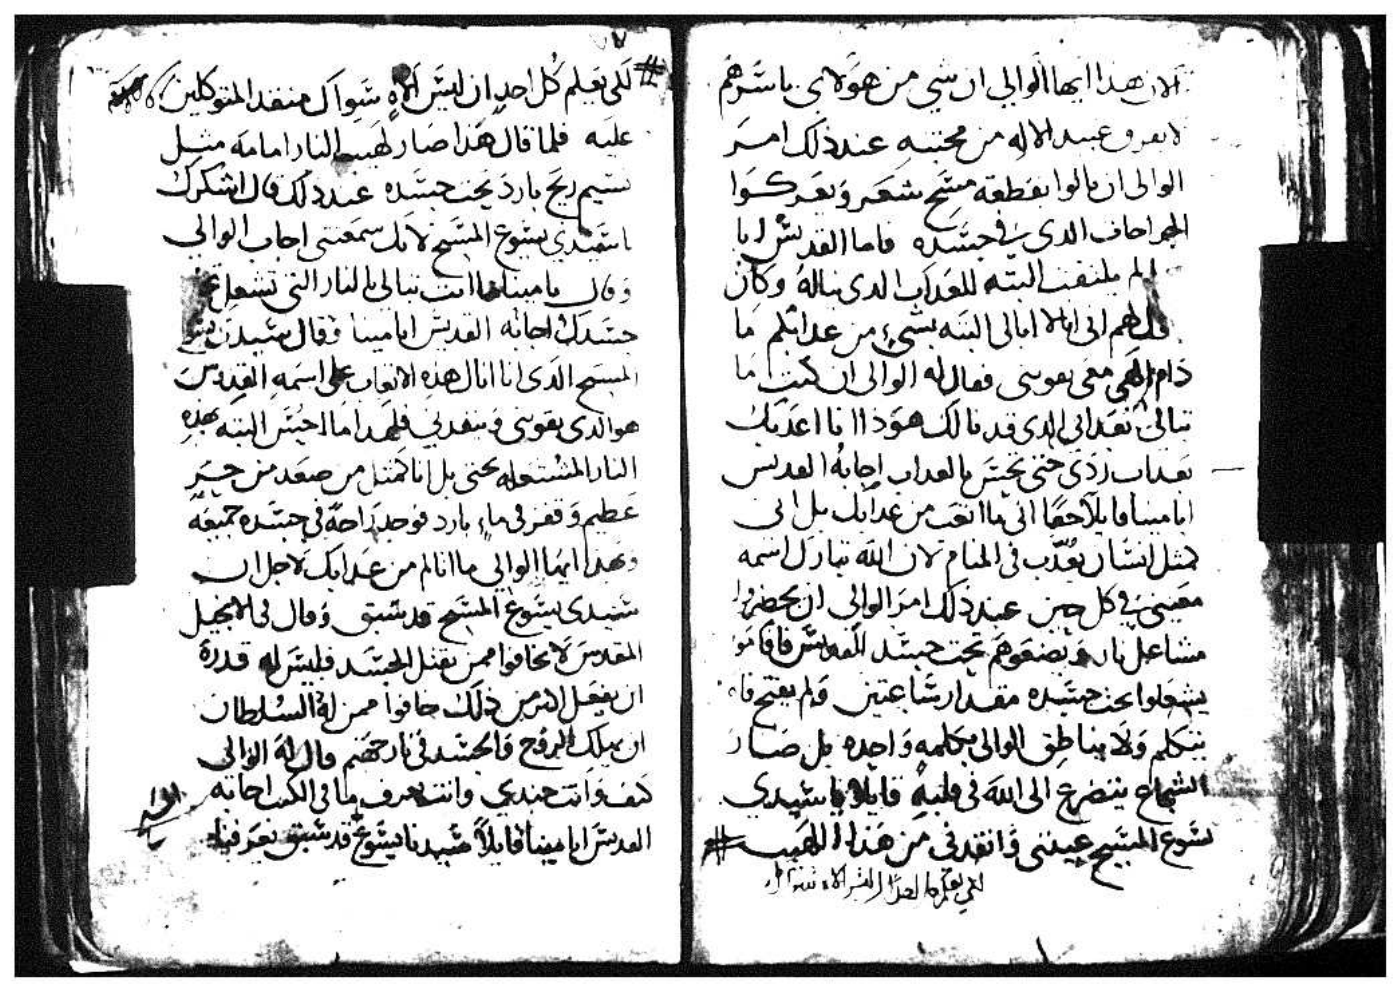 الان هذا ايها الوالي ان شي من هولاي باسرهم
لا يفرق عبيد الاله من محبته عند ذلك امر
الوالي ان ياتوا بقطعة مسح شعر ويعركوا
الجراحاف الدي في جسده فاما القديس ابا
لم يلتفت البته للعداب الدي يناله وكان
لهم اني انا لا ابالي البته بشيء من عدابكم ما
دام الاهي معي يقويني فقال له الوالي ان كنت ما
تبالي بعدابي الدي قد نالك هودا انا اعدبك
بعداب ردي حتى تحس بالعداب اجابه القديس
ابا مينا قايلا حقا اني ما اتعب من عدابك بل اني
كمثل انسان يعدب في المنام لان الله تبارك اسمه
معيني في كل حين عند ذلك امر الوالي ان يحضروا
مشاعل نار ويضعوهم تحت جسد القديس فاقاموا
يشعلوا تحت جسده مقدار ساعتين ولم يفتح فاه
يتكلم ولا يناطق الوالي بكلمه واحده بل صار
الشجاع يتضرع الى الله في قلبه قايلا يا سيدي
يسوع المسيح عينني وانقدني من هذا اللهيب
لكي يعلم كل احد ان ليس الاه سواك
٧٧
لكي يعلم كل احد ان ليس الاه سواك منقد المتوكلين
عليه فلما قال هذا صار لهيب النار امامه مثل
نسيم ريح بارد تحت جسده عند ذلك قال اشكرك
يا سيدي يسوع المسيح لانك سمعتني اجاب الوالي
وقال يا مينا ما انت تبالي بالنار التي تشعل تحت
جسدك اجابه القديس ابا مينا وقال سيدي يسوع
المسيح الدي انا انال هذه الاتعاب على اسمه القدوس
هو الدي يقويني وينقدني فلهدا ما احس البته بهذه
النار المشتعله تحتي بل انا كمثل من صعد من حر
عظيم وقفز في ماء بارد فوجد راحة في جسده جميعه
وهدا ايها الوالي ما انا الم من عدابك لاجل ان
سيدي يسوع المسيح قد سبق وقال في الانجيل
المقدس لا تخافوا ممن يقتل الجسد فليس له قدرة
ان يفعل اكتر من ذلك خافوا ممن له السلطان
ان يهلك الروح والجسد في نار جهنم قال له الوالي
كيف وانت جندي وانت تعرف ما في الكتب اجابه
القديس ابا مينا قايلا سيدنا يسوع قد سبق يعرفنا